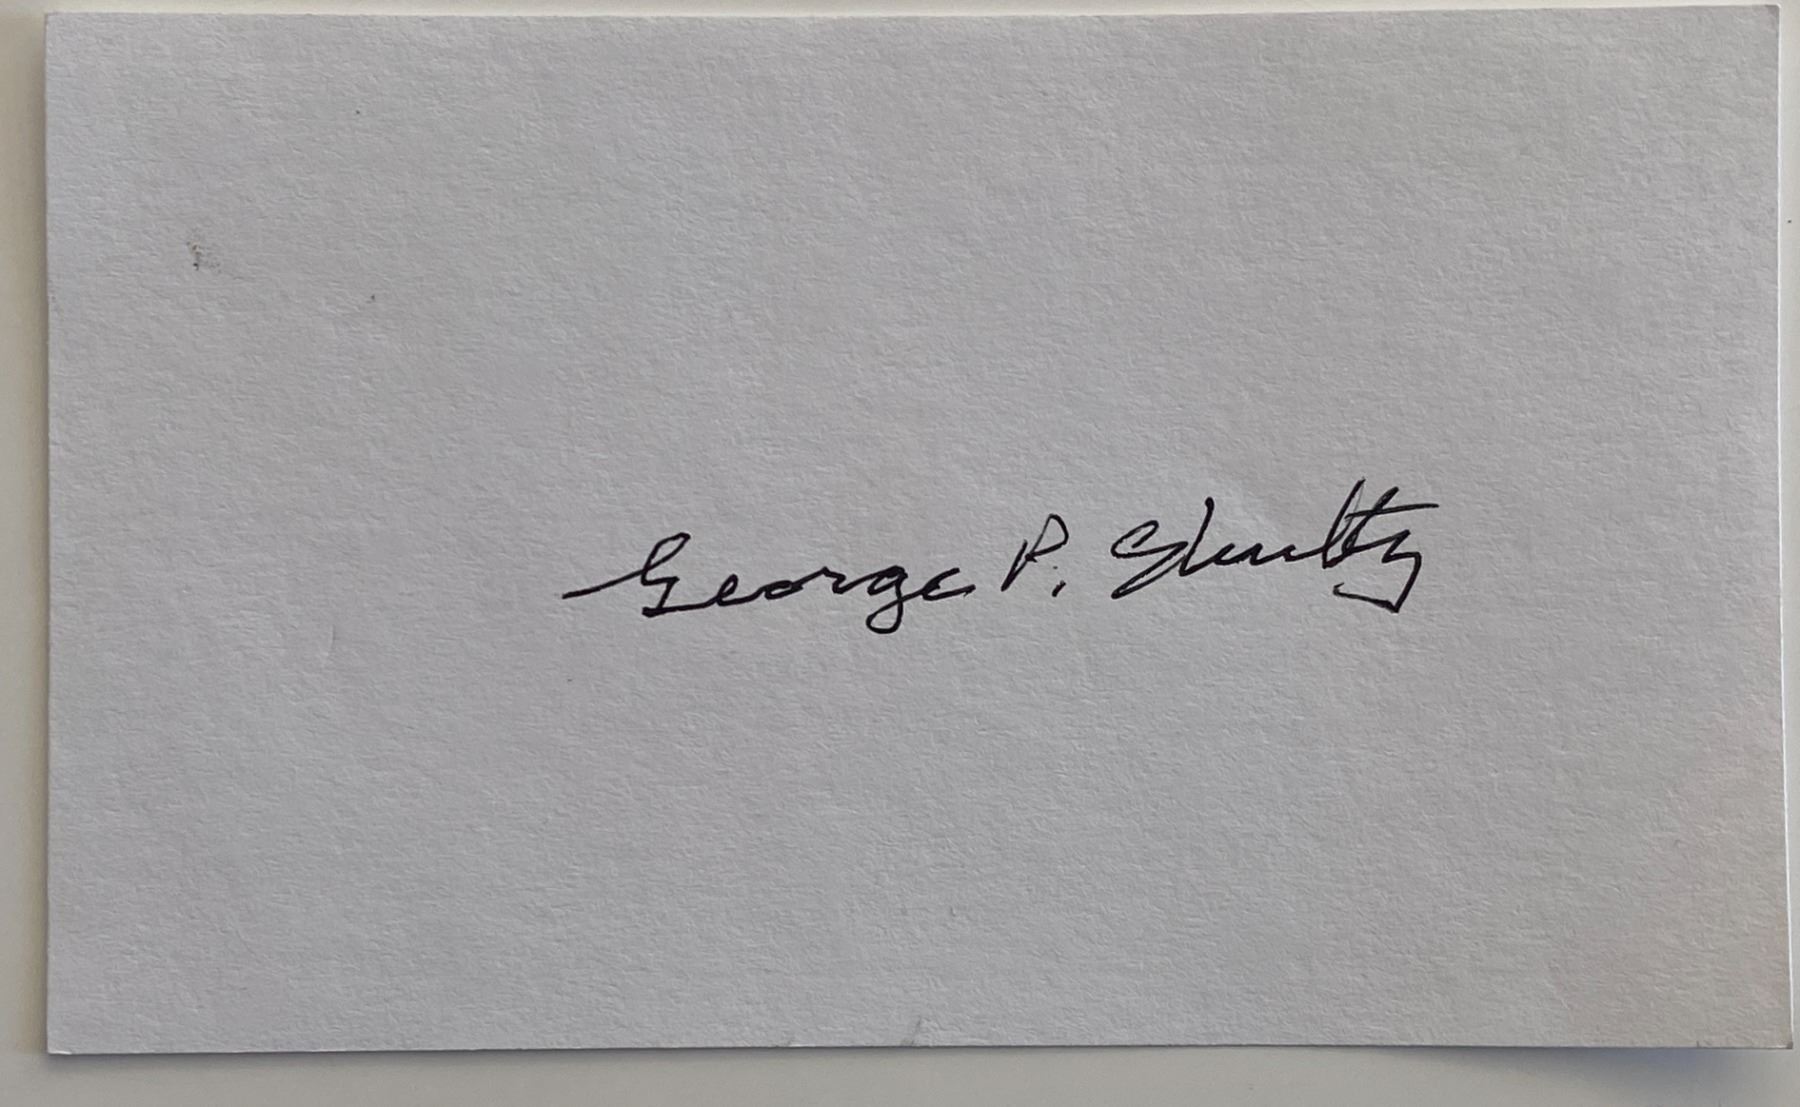 George P. Shultz